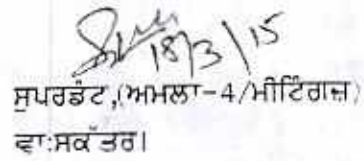 18/3/15
ਸੁਪਰਡੰਟ,(ਅਮਲਾ-4/ਮੀਟਿੰਗਜ਼)
ਵਾ:ਸਕੱਤਰ।